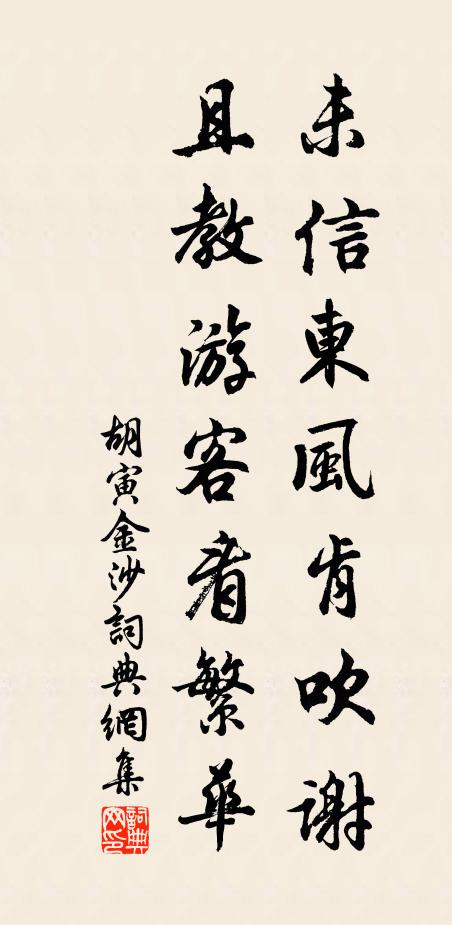 未信東風肯吹謝
且教游客看繁華
胡寅金沙詞典網集
詞典网印